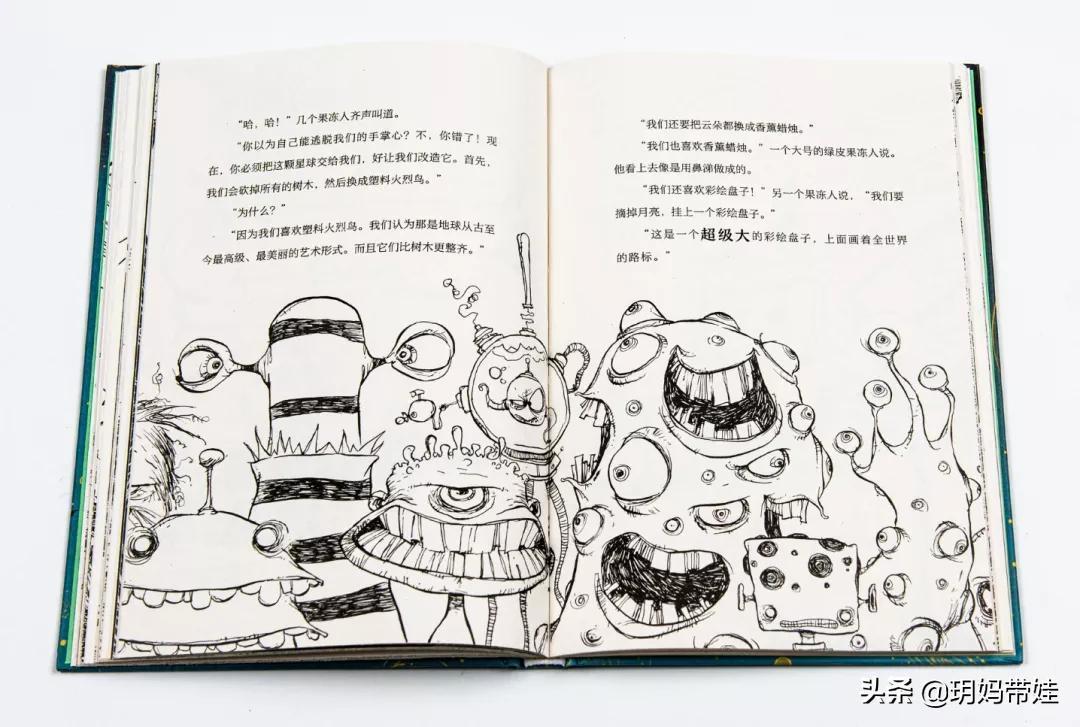 “哈，哈！”几个果冻人齐声叫道。
“你以为自己能逃脱我们的手掌心？不，你错了！现
在，你必须把这颗星球交给我们，好让我们改造它。首先，
我们会砍掉所有的树木，然后换成塑料火烈鸟。”
“为什么？”
“因为我们喜欢塑料火烈鸟。我们认为那是地球从古至
今最高级、最美丽的艺术形式。而且它们比树木更整齐。”
“我们还要把云朵都换成香薰蜡烛。”
“我们也喜欢香薰蜡烛。”一个大号的绿皮果冻人说。
他看上去像是用鼻涕做成的。
“我们还喜欢彩绘盘子！”另一个果冻人说，“我们要
摘掉月亮，挂上一个彩绘盘子。”
“这是一个超级大的彩绘盘子，上面画着全世界
的路标。”
头条 @玥妈带娃